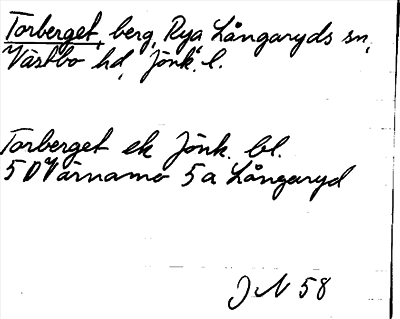 Torberget, berg, Rya Långaryds sn,
Västbo hd, Jönk. l.
Torberget ek Jönk. bl.
5 D Värnamo 5 a Långaryd
J N 58